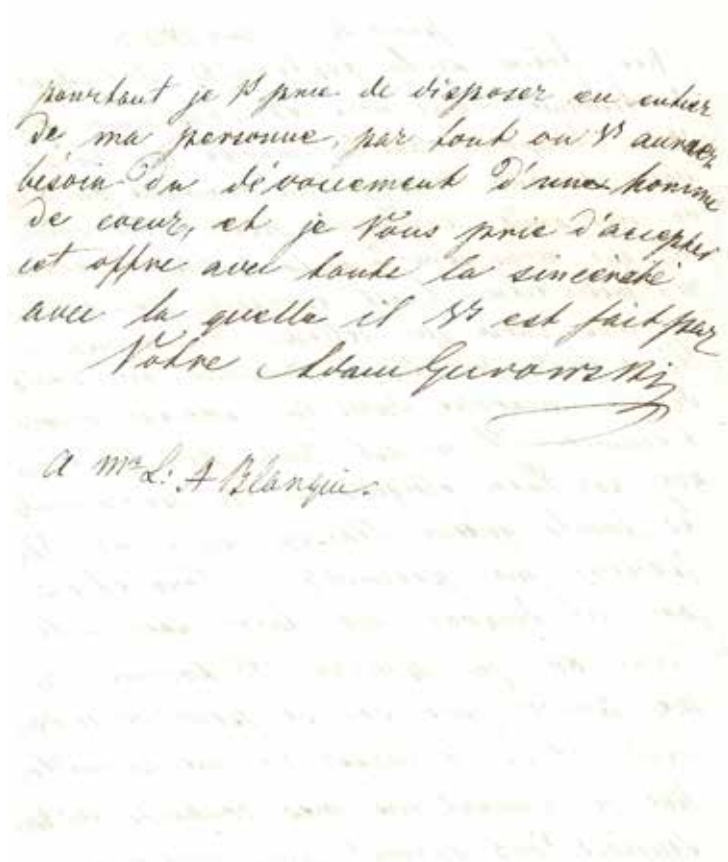 pourtant je Vs prie de disposer en entier
de ma personne, par tout ou Vs aurez
besoin du dévouement d'une homme
de coeur, et je Vous prie d'accepter
cet offre avec toute la sincerité
avec la quelle il Vs est fait par
Vôtre Adam Gurowski
A Mr L. A Blanqui.